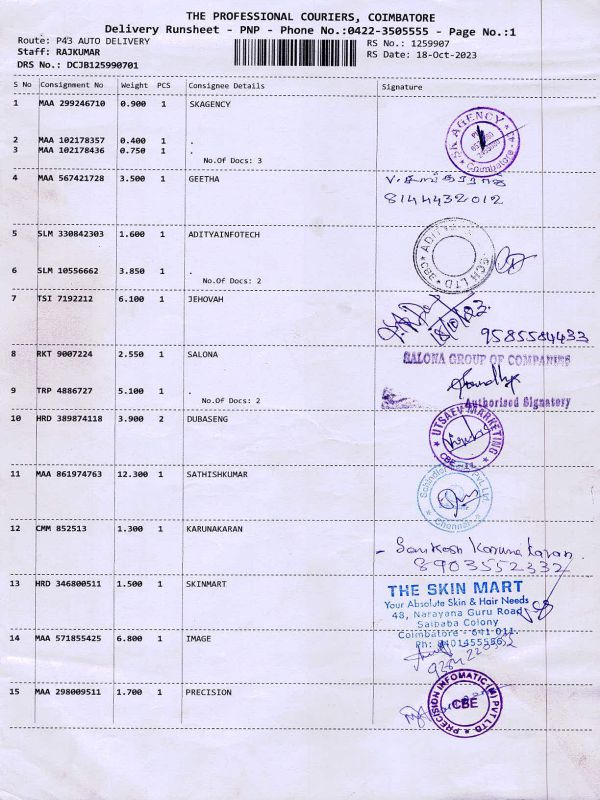 THE PROFESSIONAL COURIERS, COIMBATORE
Delivery Runsheet - PNP - Phone No.:0422-3505555 - Page No.:1
Route: P43 AUTO DELIVERY
RS No.: 1259907
Staff: RAJKUMAR
RS Date: 18-Oct-2023
DRS No.: DCJB125990701
S No Consignment No Weight PCS Consignee Details Signature
1 MAA 299246710 0.900 1 SKAGENCY
SK AGENCY
Coimbatore
2 MAA 102178357 0.400 1 .
3 MAA 102178436 0.750 1 .
No.Of Docs: 3
4 MAA 567421728 3.500 1 GEETHA
8144432012
5 SLM 330842303 1.600 1 ADITYAINFOTECH
CBE
6 SLM 10556662 3.850 1 .
No.Of Docs: 2
7 TSI 7192212 6.100 1 JEHOVAH
18/10/23
9585584433
8 RKT 9007224 2.550 1 SALONA
SALONA GROUP OF COMPANIES
9 TRP 4886727 5.100 1 .
No.Of Docs: 2
Authorised Signatory
10 HRD 389874118 3.900 2 DUBASENG
UTSAEV MARKETING
11 MAA 861974763 12.300 1 SATHISHKUMAR
Pvt. Ltd
Chennai
12 CMM 852513 1.300 1 KARUNAKARAN
8903552332
13 HRD 346800511 1.500 1 SKINMART
THE SKIN MART
Your Absolute Skin & Hair Needs
48, Narayana Guru Road
Saibaba Colony
Coimbatore - 641 011.
14 MAA 571855425 6.800 1 IMAGE
15 MAA 298009511 1.700 1 PRECISION
PRECISION INFOMATIC (M) PVT LTD
CBE